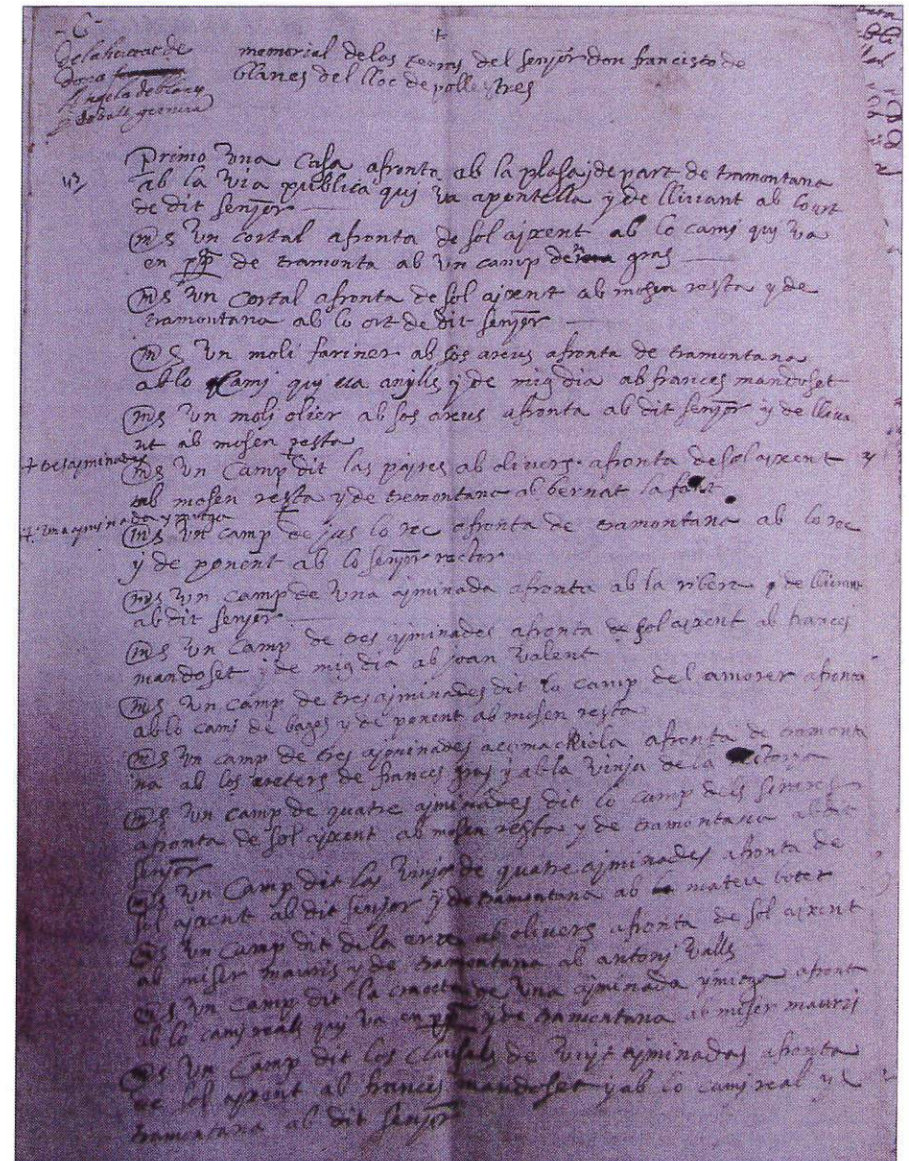 -C-
De la heretat de
dona
Angela de blanes
memorial de las terras del senjor don francisco de
blanes del lloc de pollestres
43
Primo una casa afronta ab la plasa j de part de tramontana
ab la via publica qui va a pontella y de llivant ab lo ort
de dit senjor
mes un cortal afronta de sol ajxent ab lo camj quj va
en ppa de tramonta ab un camp de gras
mes un cortal afronta de sol ajxent ab mosen resta y de
tramontana ab lo ort de dit senjor
mes un moli fariner ab sos areus afronta de tramontana
ab lo camj quj va anylls y de mig dia ab frances mandoset
mes un moli olier ab sos areus afronta ab dit senjor y de lliva
nt ab mosen resta
mes un camp dit las ab olivers afronta de sol ajxent
ab mosen resta y de tremontana ab bernat la
+ una ajminada y mitga
mes un camp de jus lo rec afronta de tramontana ab lo rec
y de ponent ab lo senjor rector
mes un camp de una ajminada afronta ab la ribera y de llivant
ab dit senjor
mes un camp de tres ajminades afronta de sol ajxent ab frances
mandoset y de mig dia ab joan valent
mes un camp de tres ajminades dit lo camp del amorer afronta
ab lo cami de bages y de ponent ab mosen resta
mes un camp de tres ajminades a afronta de tramonta
na ab los de frances gras y ab la vinja de la
mes un camp de quatre ajminades dit lo camp dels
afronta de sol ajxent ab mosen resta y de tramontana ab dit
senjor
mes un camp dit las vinjas de quatre ajminades afronta de
sol ajxent ab dit senjor y de tramontana ab mateu botet
mes un camp dit de la ab olivers afronta de sol ajxent
ab miser mauris y de tramontana ab antonj valls
mes un camp dit la de una ajminada y mitga afronta
ab lo camj reals quj va en ppa y de tramontana ab miser mauris
mes un camp dit los clausals de vujt ajminades afronta
de sol ajxent ab frances mandoset y ab lo camj real y
tramontana ab dit senjor